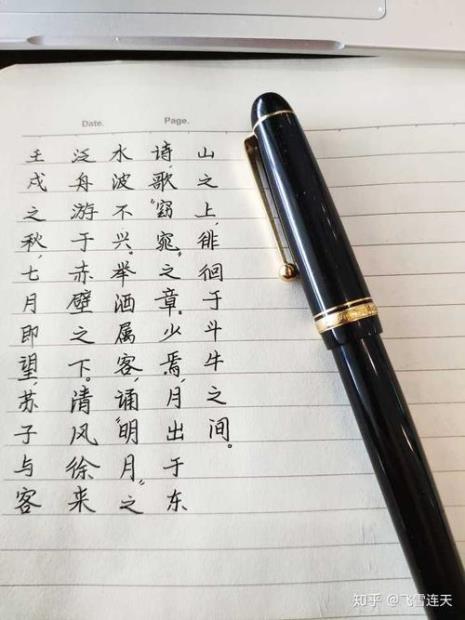 Date. Page.
壬戌之秋，七月即望，苏子与客
泛舟游于赤壁之下。清风徐来
水波不兴。举酒属客，诵“明月”之
诗，歌“窈窕”之章。少焉，月出于东
山之上，徘徊于斗牛之间。
知乎 @飞雪连天